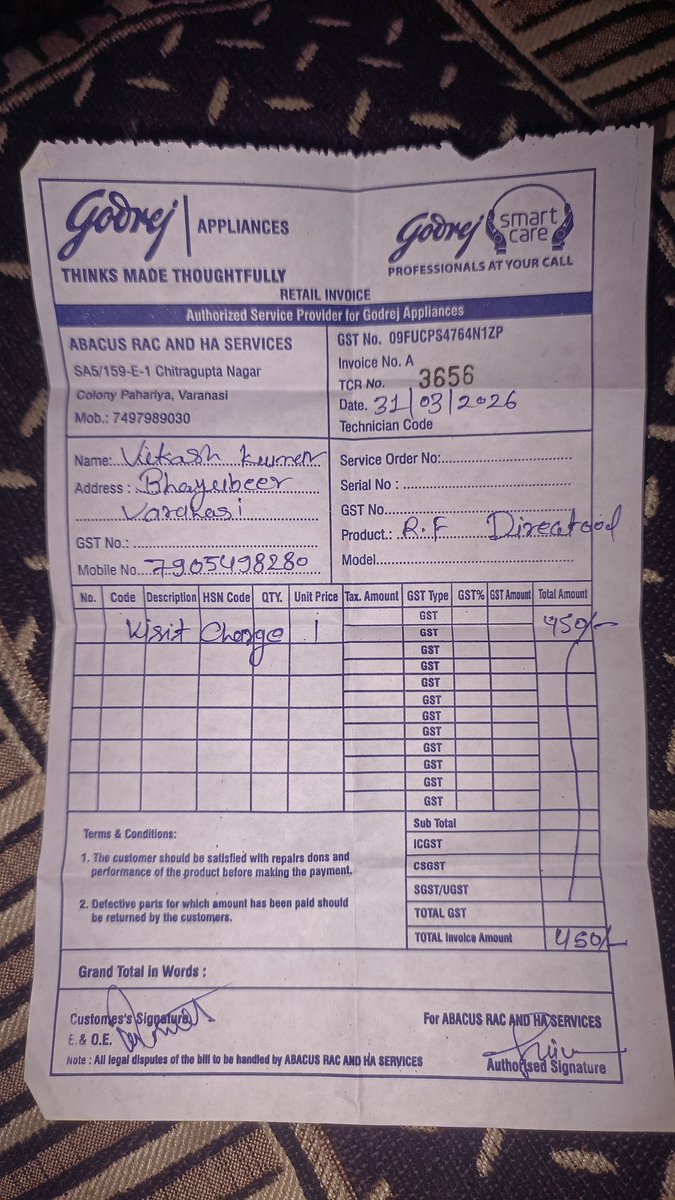 Godrej | APPLIANCES
THINKS MADE THOUGHTFULLY
Godrej smart care
PROFESSIONALS AT YOUR CALL
RETAIL INVOICE
Authorized Service Provider for Godrej Appliances
ABACUS RAC AND HA SERVICES
SA5/159-E-1 Chitragupta Nagar
Colony Pahariya, Varanasi
Mob.: 7497989030
GST No. 09FUCPS4764N1ZP
Invoice No. A
TCR No. 3656
Date. 31/03/2026
Technician Code
Name: Vikash Kumar
Address : Bhayubeer
Varanasi
GST No.:
Mobile No. 7905498280
Service Order No:
Serial No :
GST No.
Product.: R.F Direatood
Model.
No. Code Description HSN Code QTY. Unit Price Tax. Amount GST Type GST% GST Amount Total Amount
GST
Visit Charge 1 GST 450/-
GST
GST
GST
GST
GST
GST
GST
GST
GST
GST
Terms & Conditions:
1. The customer should be satisfied with repairs dons and
performance of the product before making the payment.
2. Defective parts for which amount has been paid should
be returned by the customers.
Sub Total
ICGST
CSGST
SGST/UGST
TOTAL GST
TOTAL Invoice Amount 450/-
Grand Total in Words :
Customes's Signature
E. & O.E.
Note : All legal disputes of the bill to be handled by ABACUS RAC AND HA SERVICES
For ABACUS RAC AND HA SERVICES
Authorised Signature